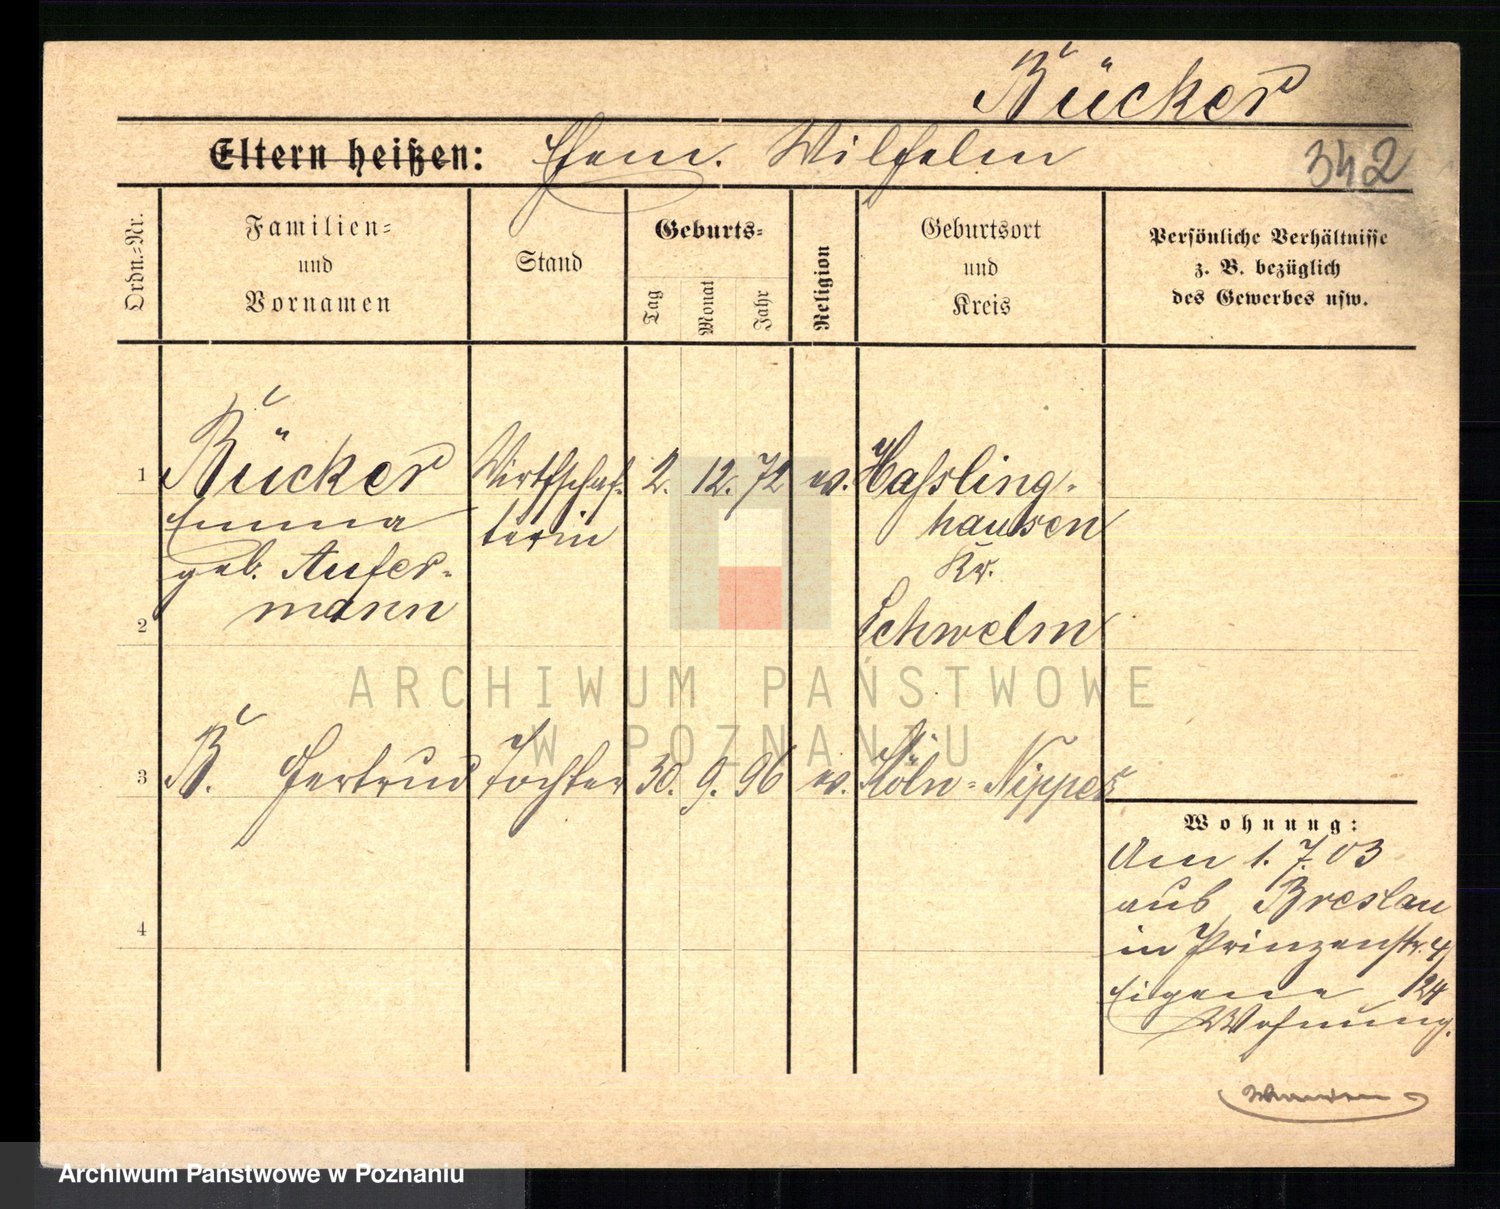 Bücker
Eltern heißen: Ehem. Wilhelm
342
Ordn.-Nr.
Familien-
und
Vornamen
Stand
Geburts-
Tag
Monat
Jahr
Religion
Geburtsort
und
Kreis
Persönliche Verhältnisse
z. B. bezüglich
des Gewerbes usw.
1 Bücker Wirthschaf- 2. 12. 72 ev. Haßling-
Emma terin hausen
geb. Aufer- Kr.
2 mann Schwelm
ARCHIWUM PAŃSTWOWE
W POZNANIU
3 B. Gertrud Tochter 30. 9. 96 ev. Köln-Nippes
Wohnung:
Am 1.7.03
aus Breslau
4
in Prinzenstr. 4
Eigene 124
Wohnung.
Archiwum Państwowe w Poznaniu